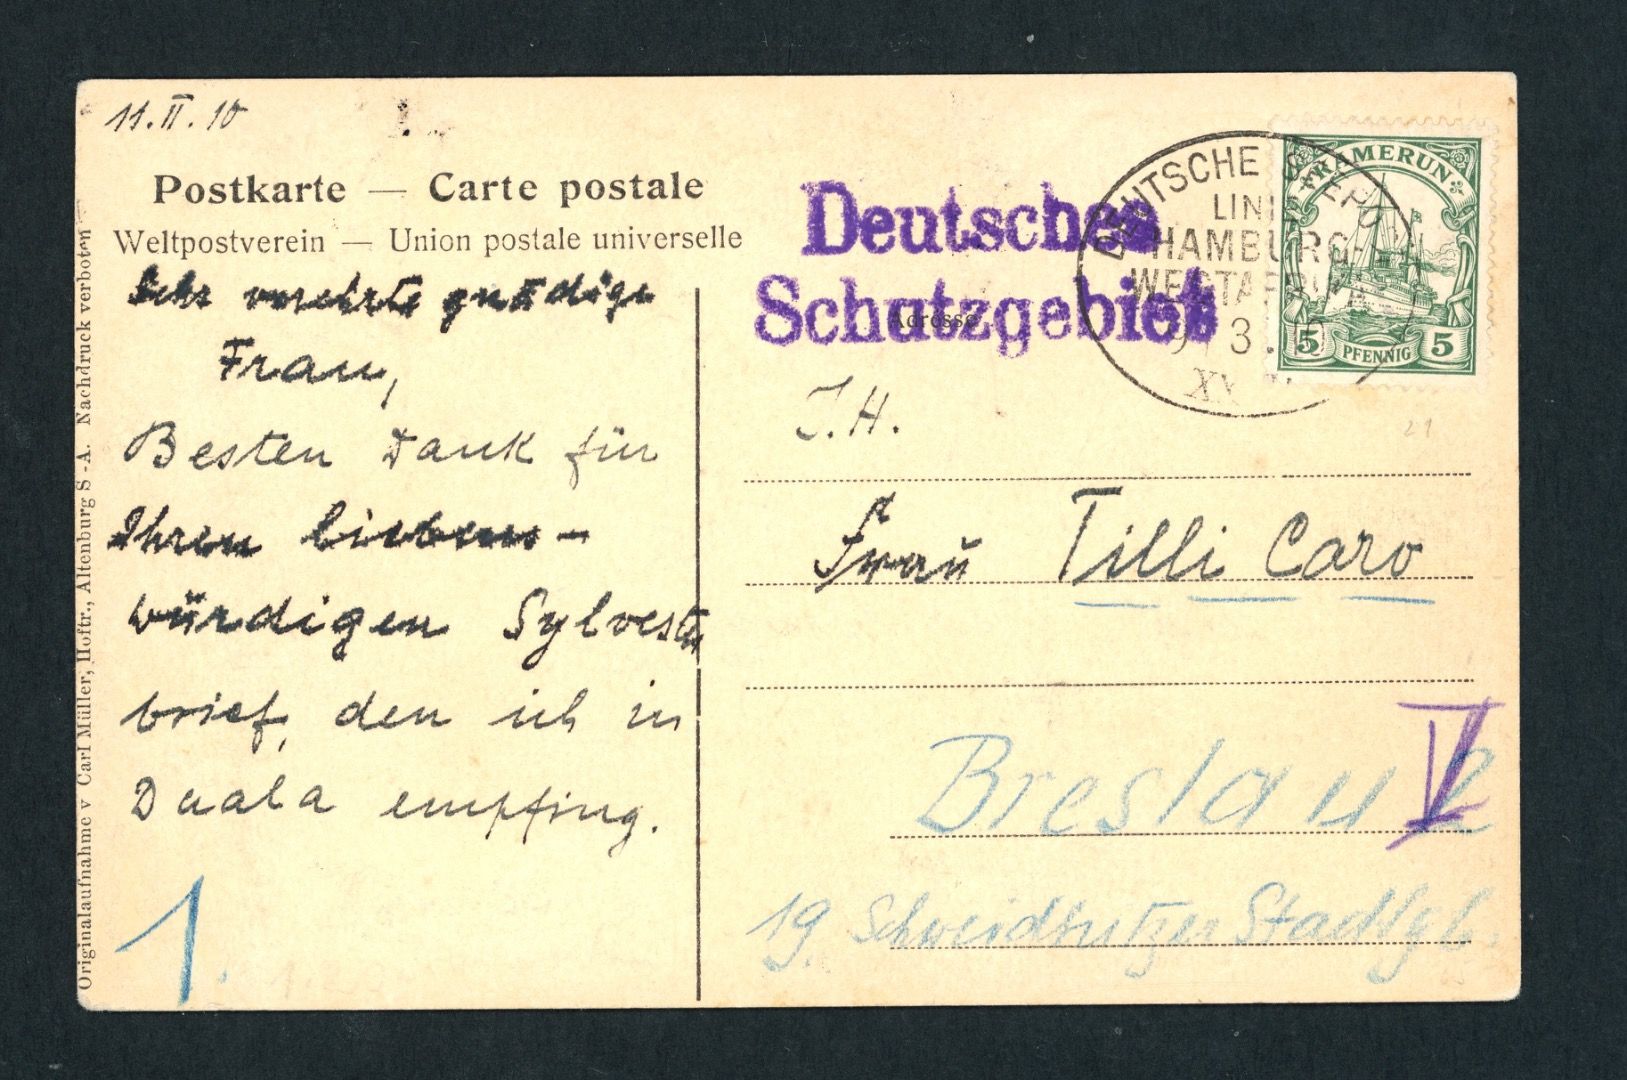 11.II.10
Postkarte — Carte postale
Weltpostverein — Union postale universelle
Sehr verehrte gnädige
Frau,
Besten Dank für
Ihren liebens-
würdigen Sylvester
brief, den ich in
Duala empfing.
1.
Originalaufnahme v Carl Müller, Hoftr., Altenburg S.-A. Nachdruck verboten
Deutsches
Schutzgebiet
Adresse
DEUTSCHE SEEPO
LINIE
HAMBURG-
WESTAFRIKA
9 3.
XX
KAMERUN
5 PFENNIG 5
21
J.H.
Frau Tilli Caro
Breslau 2
V
19. Schweidnitzer Stadtgb.